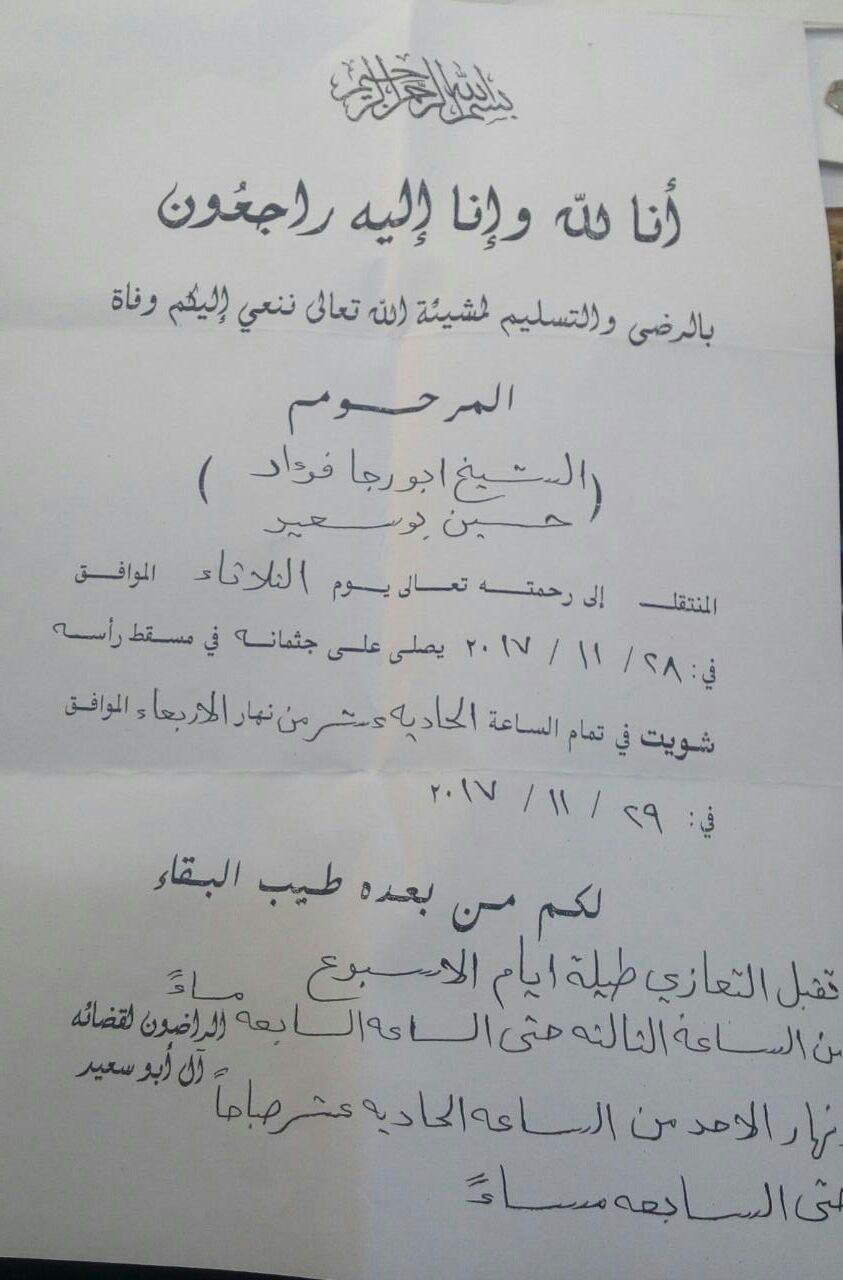 بسم الله الرحمن الرحيم
أنا لله وإنا إليه راجعُون
بالرضى والتسليم لمشيئة الله تعالى ننعي إليكم وفاة
المرحوم
(الشيخ ابو رجا فؤاد)
حسين بوسعيد
المنتقل إلى رحمته تعالى يوم الثلاثاء الموافق
في: ٢٨ / ١١ / ٢٠١٧ يصلى على جثمانه في مسقط رأسه
شويت في تمام الساعة الحاديه عشر من نهار الاربعاء الموافق
في: ٢٩ / ١١ / ٢٠١٧
لكم من بعده طيب البقاء
تقبل التعازي طيلة ايام الاسبوع
من الساعة الثالثه حتى الساعه السابعه مساءً
الراضون لقضائه
آل أبو سعيد
نهار الاحد من الساعه الحاديه عشر صباحاً
حتى السابعه مساءً